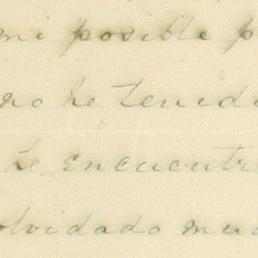 mi posible p
no he tenid
le encuentr
olvidado muc